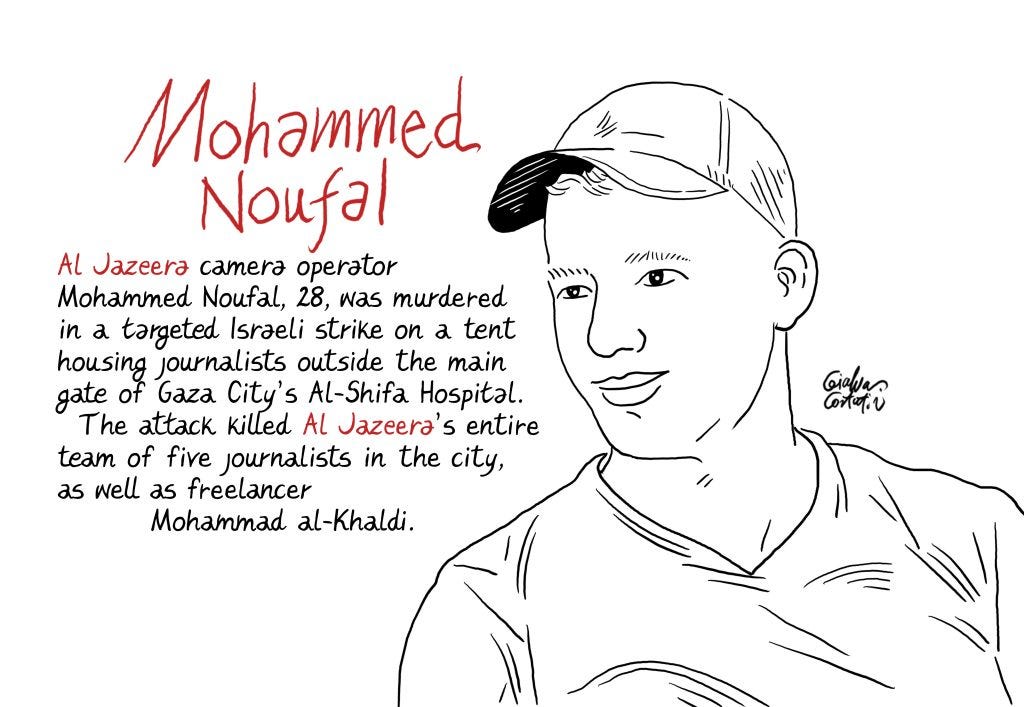 Mohammed
Noufal
Al Jazeera camera operator
Mohammed Noufal, 28, was murdered
in a targeted Israeli strike on a tent
housing journalists outside the main
gate of Gaza City's Al-Shifa Hospital.
The attack killed Al Jazeera's entire
team of five journalists in the city,
as well as freelancer
Mohammad al-Khaldi.